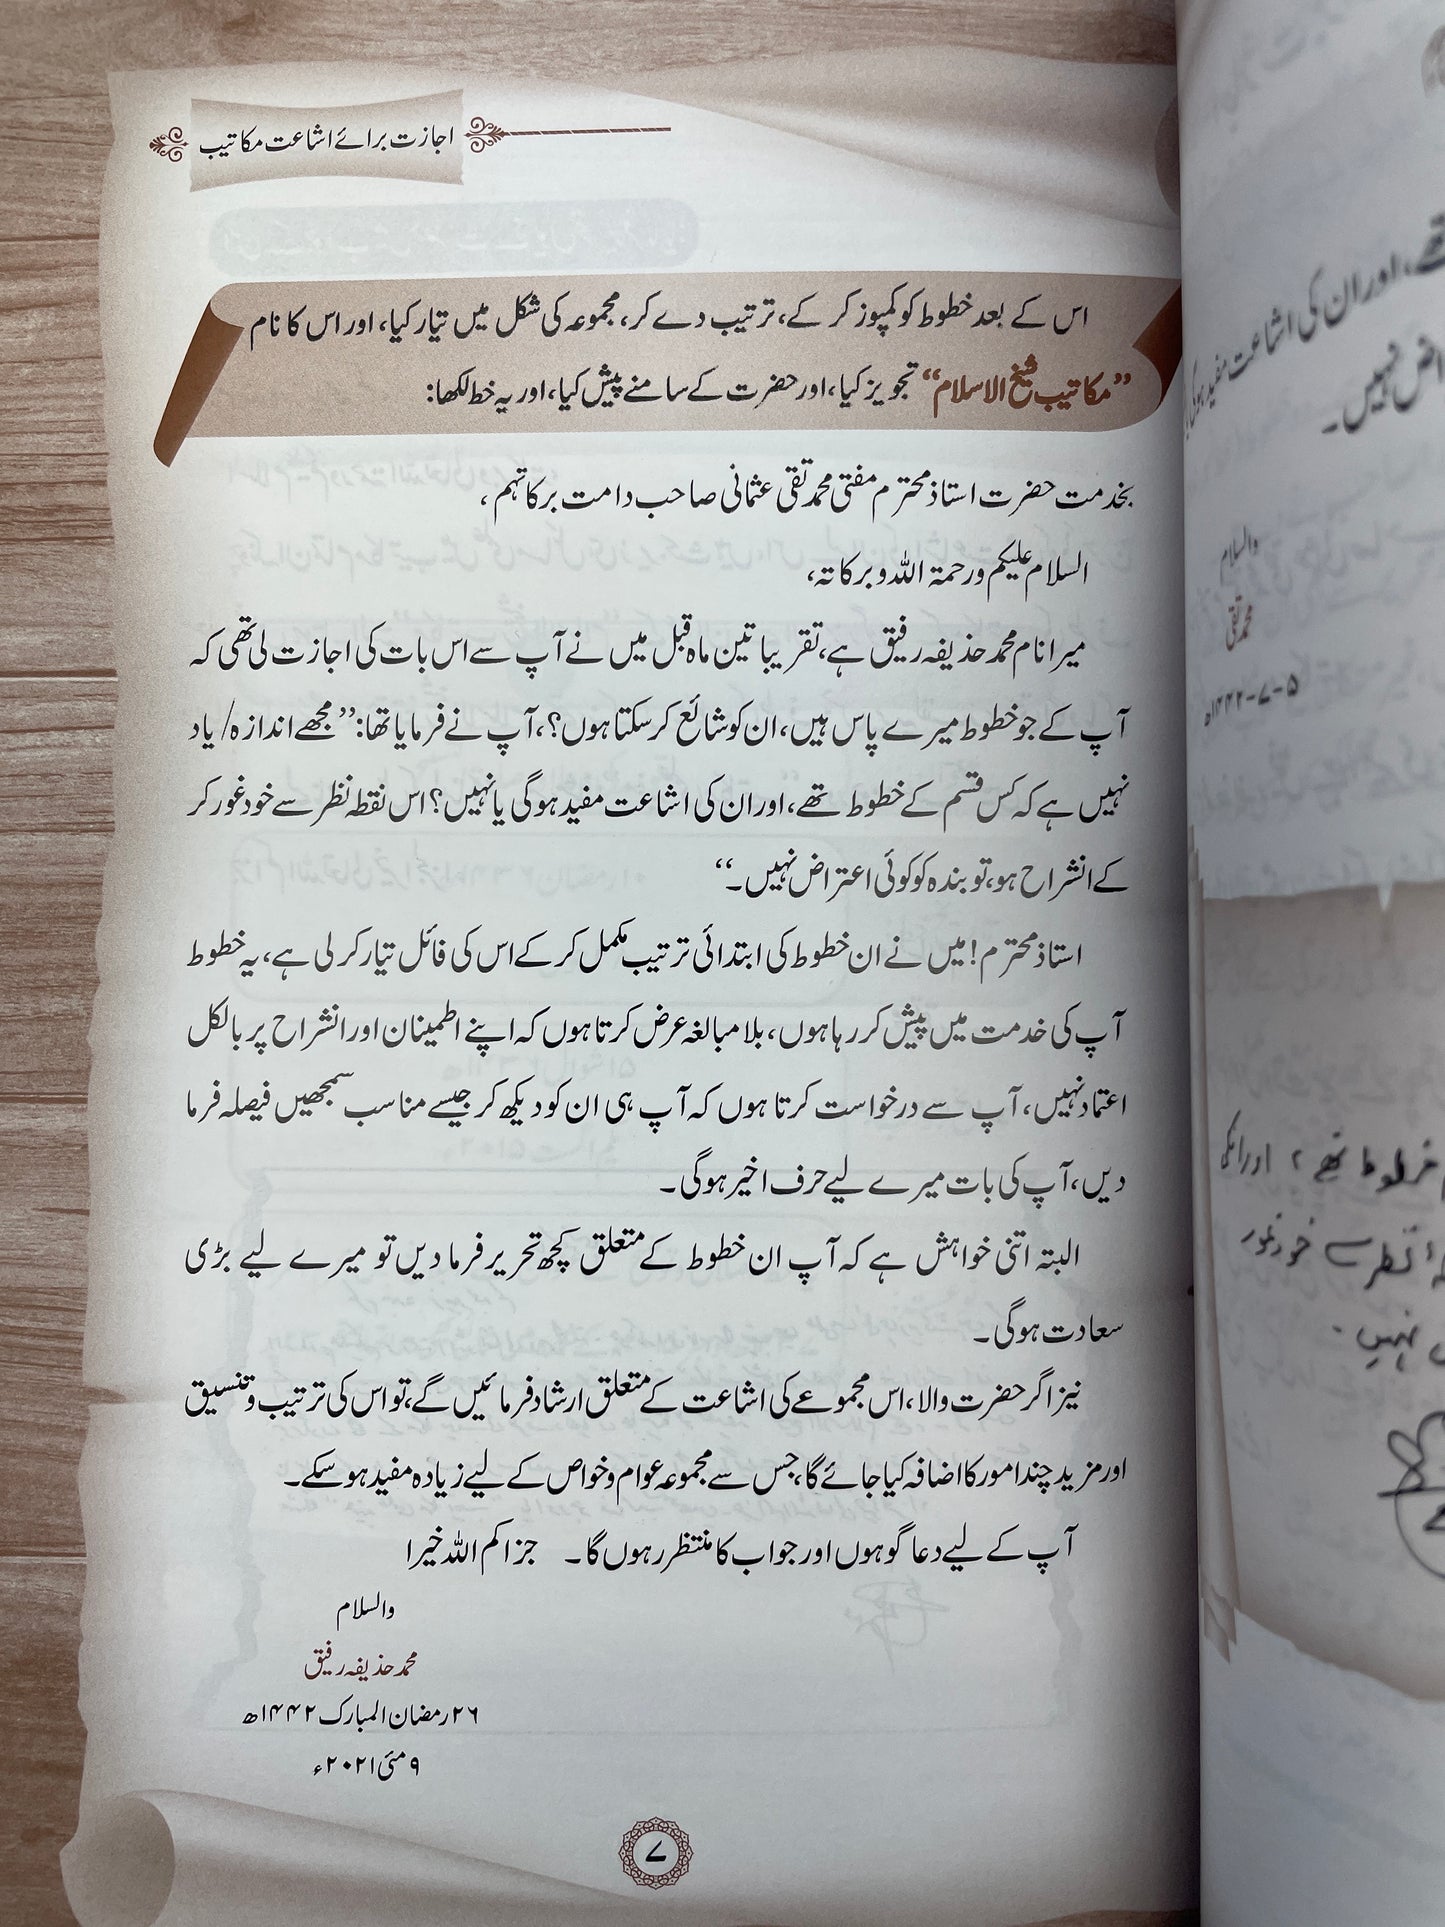 اجازت برائے اشاعت مکاتیب
اس کے بعد خطوط کو کمپوز کر کے، ترتیب دے کر، مجموعہ کی شکل میں تیار کیا، اور اس کا نام
”مکاتیب شیخ الاسلام“ تجویز کیا، اور حضرت کے سامنے پیش کیا، اور یہ خط لکھا:
بخدمت حضرت استاذ محترم مفتی محمد تقی عثمانی صاحب دامت برکاتہم،
السلام علیکم ورحمۃ اللہ وبرکاتہ،
میرا نام محمد حذیفہ رفیق ہے، تقریبا تین ماہ قبل میں نے آپ سے اس بات کی اجازت لی تھی کہ
آپ کے جو خطوط میرے پاس ہیں، ان کو شائع کر سکتا ہوں؟، آپ نے فرمایا تھا: ”مجھے اندازہ/ یاد
نہیں ہے کہ کس قسم کے خطوط تھے، اور ان کی اشاعت مفید ہوگی یا نہیں؟ اس نقطہ نظر سے خود غور کر
کے انشراح ہو، تو بندہ کو کوئی اعتراض نہیں۔“
استاذ محترم! میں نے ان خطوط کی ابتدائی ترتیب مکمل کر کے اس کی فائل تیار کر لی ہے، یہ خطوط
آپ کی خدمت میں پیش کر رہا ہوں، بلا مبالغہ عرض کرتا ہوں کہ اپنے اطمینان اور انشراح پر بالکل
اعتماد نہیں، آپ سے درخواست کرتا ہوں کہ آپ ہی ان کو دیکھ کر جیسے مناسب سمجھیں فیصلہ فرما
دیں، آپ کی بات میرے لیے حرف اخیر ہوگی۔
البتہ اتنی خواہش ہے کہ آپ ان خطوط کے متعلق کچھ تحریر فرما دیں تو میرے لیے بڑی
سعادت ہوگی۔
نیز اگر حضرت والا، اس مجموعے کی اشاعت کے متعلق ارشاد فرمائیں گے، تو اس کی ترتیب و تنسیق
اور مزید چند امور کا اضافہ کیا جائے گا، جس سے مجموعہ عوام و خواص کے لیے زیادہ مفید ہو سکے۔
آپ کے لیے دعا گو ہوں اور جواب کا منتظر رہوں گا۔ جزاکم اللہ خیرا
والسلام
محمد حذیفہ رفیق
۲۶ رمضان المبارک ۱۴۴۲ھ
۹ مئی ۲۰۲۱ء
۷
تھے، اور ان کی اشاعت مفید ہوگی
نہیں۔
والسلام
محمد تقی
۵-۷-۱۴۴۲ھ
خطوط تھے، اور انکی
نظر سے خود غور
نہیں۔